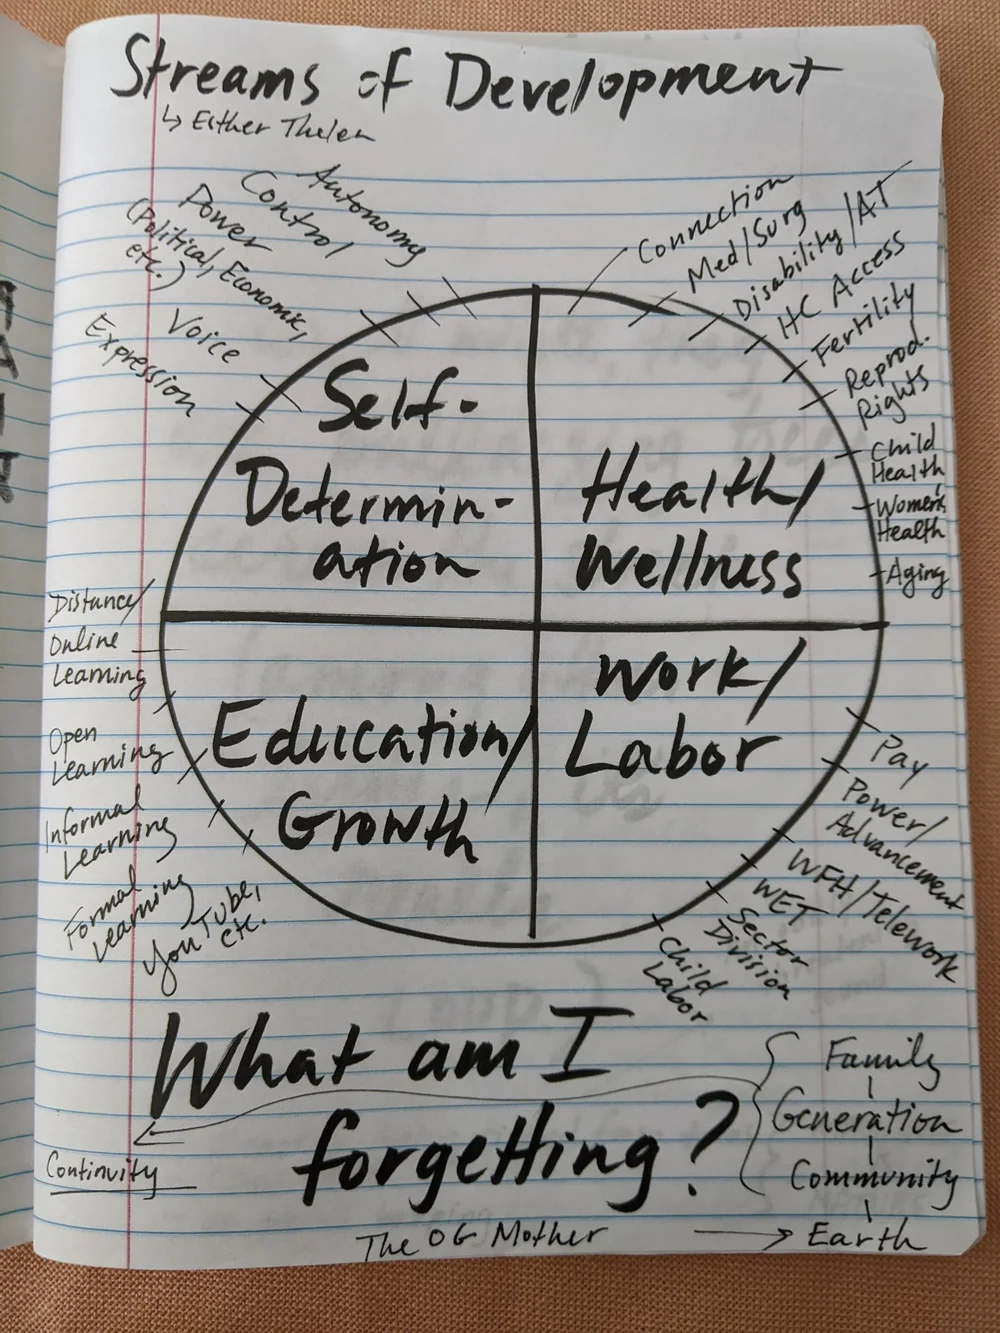 Streams of Development
↳ Esther Thelen
Autonomy
Control
Power
(Political, Economic,
etc.)
Voice
Expression
Connection
Med/Surg
Disability/AT
HC Access
Fertility
Reprod.
Rights
Child
Health
Women's
Health
Aging
Self-
Determin-
ation
Health/
Wellness
Education/
Growth
Work/
Labor
Distance/
Online
Learning
Open
Learning
Informal
Learning
Formal
Learning
YouTube,
etc.
Pay
Power/
Advancement
WFH/Telework
WET
Sector
Division
Child
Labor
What am I
forgetting?
Family
Generation
Community
Earth
Continuity
The OG Mother